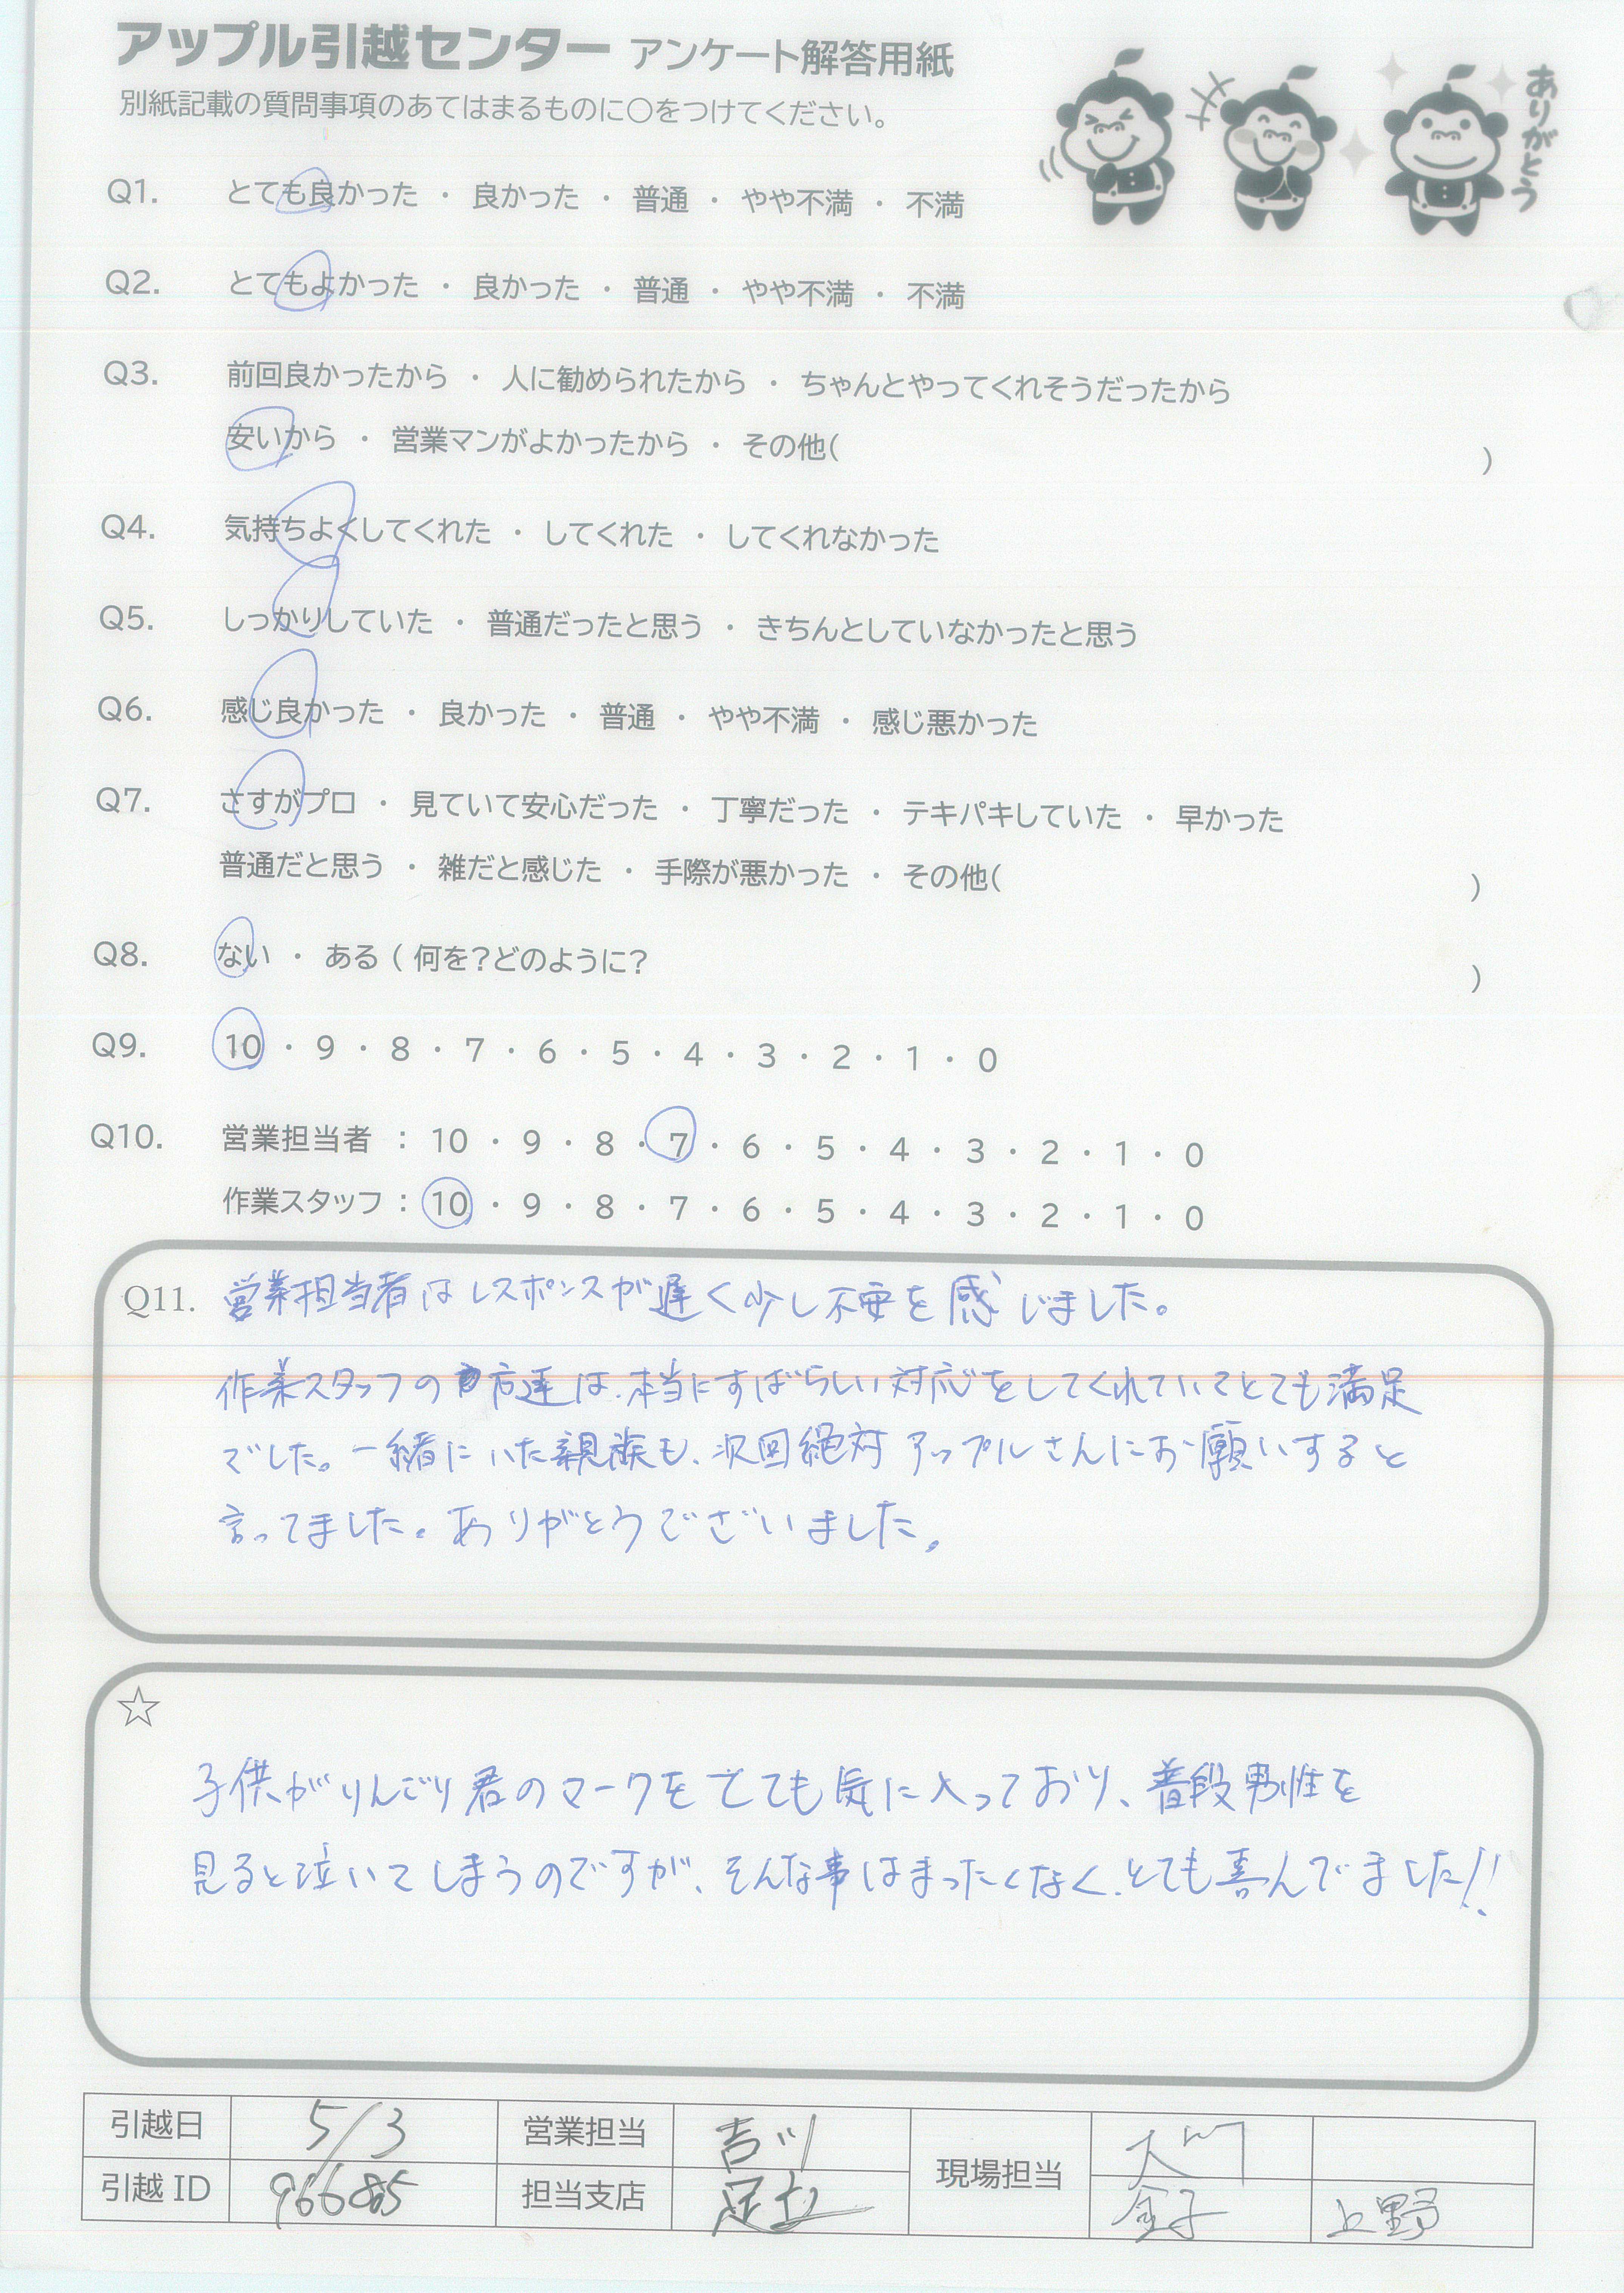 アップル引越センター アンケート解答用紙
別紙記載の質問事項のあてはまるものに○をつけてください。
ありがとう
Q1. とても良かった ・ 良かった ・ 普通 ・ やや不満 ・ 不満
Q2. とてもよかった ・ 良かった ・ 普通 ・ やや不満 ・ 不満
Q3. 前回良かったから ・ 人に勧められたから ・ ちゃんとやってくれそうだったから
安いから ・ 営業マンがよかったから ・ その他( )
Q4. 気持ちよくしてくれた ・ してくれた ・ してくれなかった
Q5. しっかりしていた ・ 普通だったと思う ・ きちんとしていなかったと思う
Q6. 感じ良かった ・ 良かった ・ 普通 ・ やや不満 ・ 感じ悪かった
Q7. さすがプロ ・ 見ていて安心だった ・ 丁寧だった ・ テキパキしていた ・ 早かった
普通だと思う ・ 雑だと感じた ・ 手際が悪かった ・ その他( )
Q8. ない ・ ある ( 何を?どのように? )
Q9. 10 ・ 9 ・ 8 ・ 7 ・ 6 ・ 5 ・ 4 ・ 3 ・ 2 ・ 1 ・ 0
Q10. 営業担当者 : 10 ・ 9 ・ 8 ・ 7 ・ 6 ・ 5 ・ 4 ・ 3 ・ 2 ・ 1 ・ 0
作業スタッフ : 10 ・ 9 ・ 8 ・ 7 ・ 6 ・ 5 ・ 4 ・ 3 ・ 2 ・ 1 ・ 0
Q11. 営業担当者はレスポンスが遅く少し不安を感じました。
作業スタッフの方達は、本当にすばらしい対応をしてくれていてとても満足
でした。一緒にいた親族も、次回絶対アップルさんにお願いすると
言ってました。ありがとうございました。
☆
子供がりんごり君のマークをとても気に入っており、普段男性を
見ると泣いてしまうのですが、そんな事はまったくなく、とても喜んでました!!
引越日 5/3 営業担当 吉川 現場担当 大川
引越 ID 96685 担当支店 足立 金子 上野